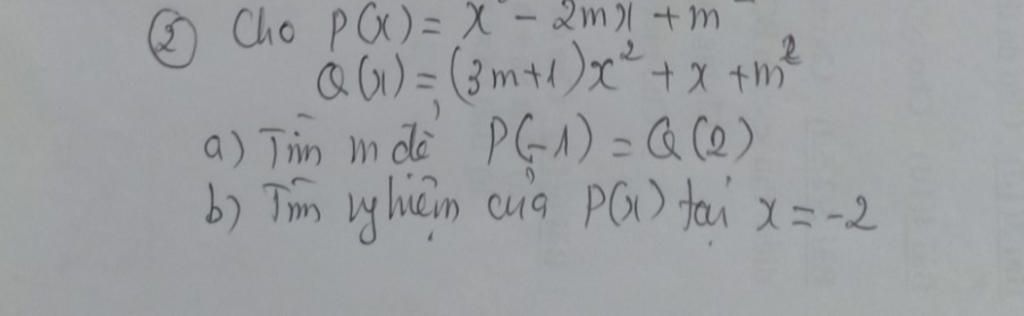 ② Cho P(x) = x - 2mx + m
Q(x) = (3m+1)x² + x + m²
a) Tìm m để P(-1) = Q(2)
b) Tìm nghiệm của P(x) tại x = -2